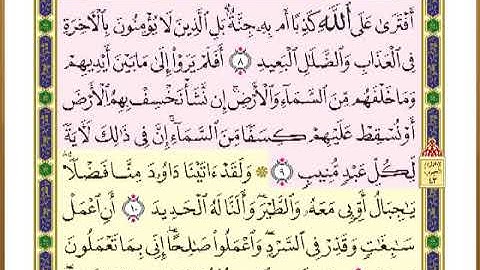 أَفْتَرَىٰ عَلَى ٱللَّهِ كَذِبًا أَم بِهِۦ جِنَّةٌۢ ۗ بَلِ ٱلَّذِينَ لَا يُؤْمِنُونَ بِٱلْأَخِرَةِ
فِى ٱلْعَذَابِ وَٱلضَّلَٰلِ ٱلْبَعِيدِ ٨ أَفَلَمْ يَرَوْا۟ إِلَىٰ مَا بَيْنَ أَيْدِيهِمْ
وَمَا خَلْفَهُم مِّنَ ٱلسَّمَآءِ وَٱلْأَرْضِ ۚ إِن نَّشَأْ نَخْسِفْ بِهِمُ ٱلْأَرْضَ
أَوْ نُسْقِطْ عَلَيْهِمْ كِسَفًا مِّنَ ٱلسَّمَآءِ ۚ إِنَّ فِى ذَٰلِكَ لَءَايَةً
لِّكُلِّ عَبْدٍ مُّنِيبٍ ٩ ۞ وَلَقَدْ ءَاتَيْنَا دَاوُۥدَ مِنَّا فَضْلًا ۖ
يَٰجِبَالُ أَوِّبِى مَعَهُۥ وَٱلطَّيْرَ ۖ وَأَلَنَّا لَهُ ٱلْحَدِيدَ ١٠ أَنِ ٱعْمَلْ
سَٰبِغَٰتٍ وَقَدِّرْ فِى ٱلسَّرْدِ ۖ وَٱعْمَلُوا۟ صَٰلِحًا ۖ إِنِّى بِمَا تَعْمَلُونَ